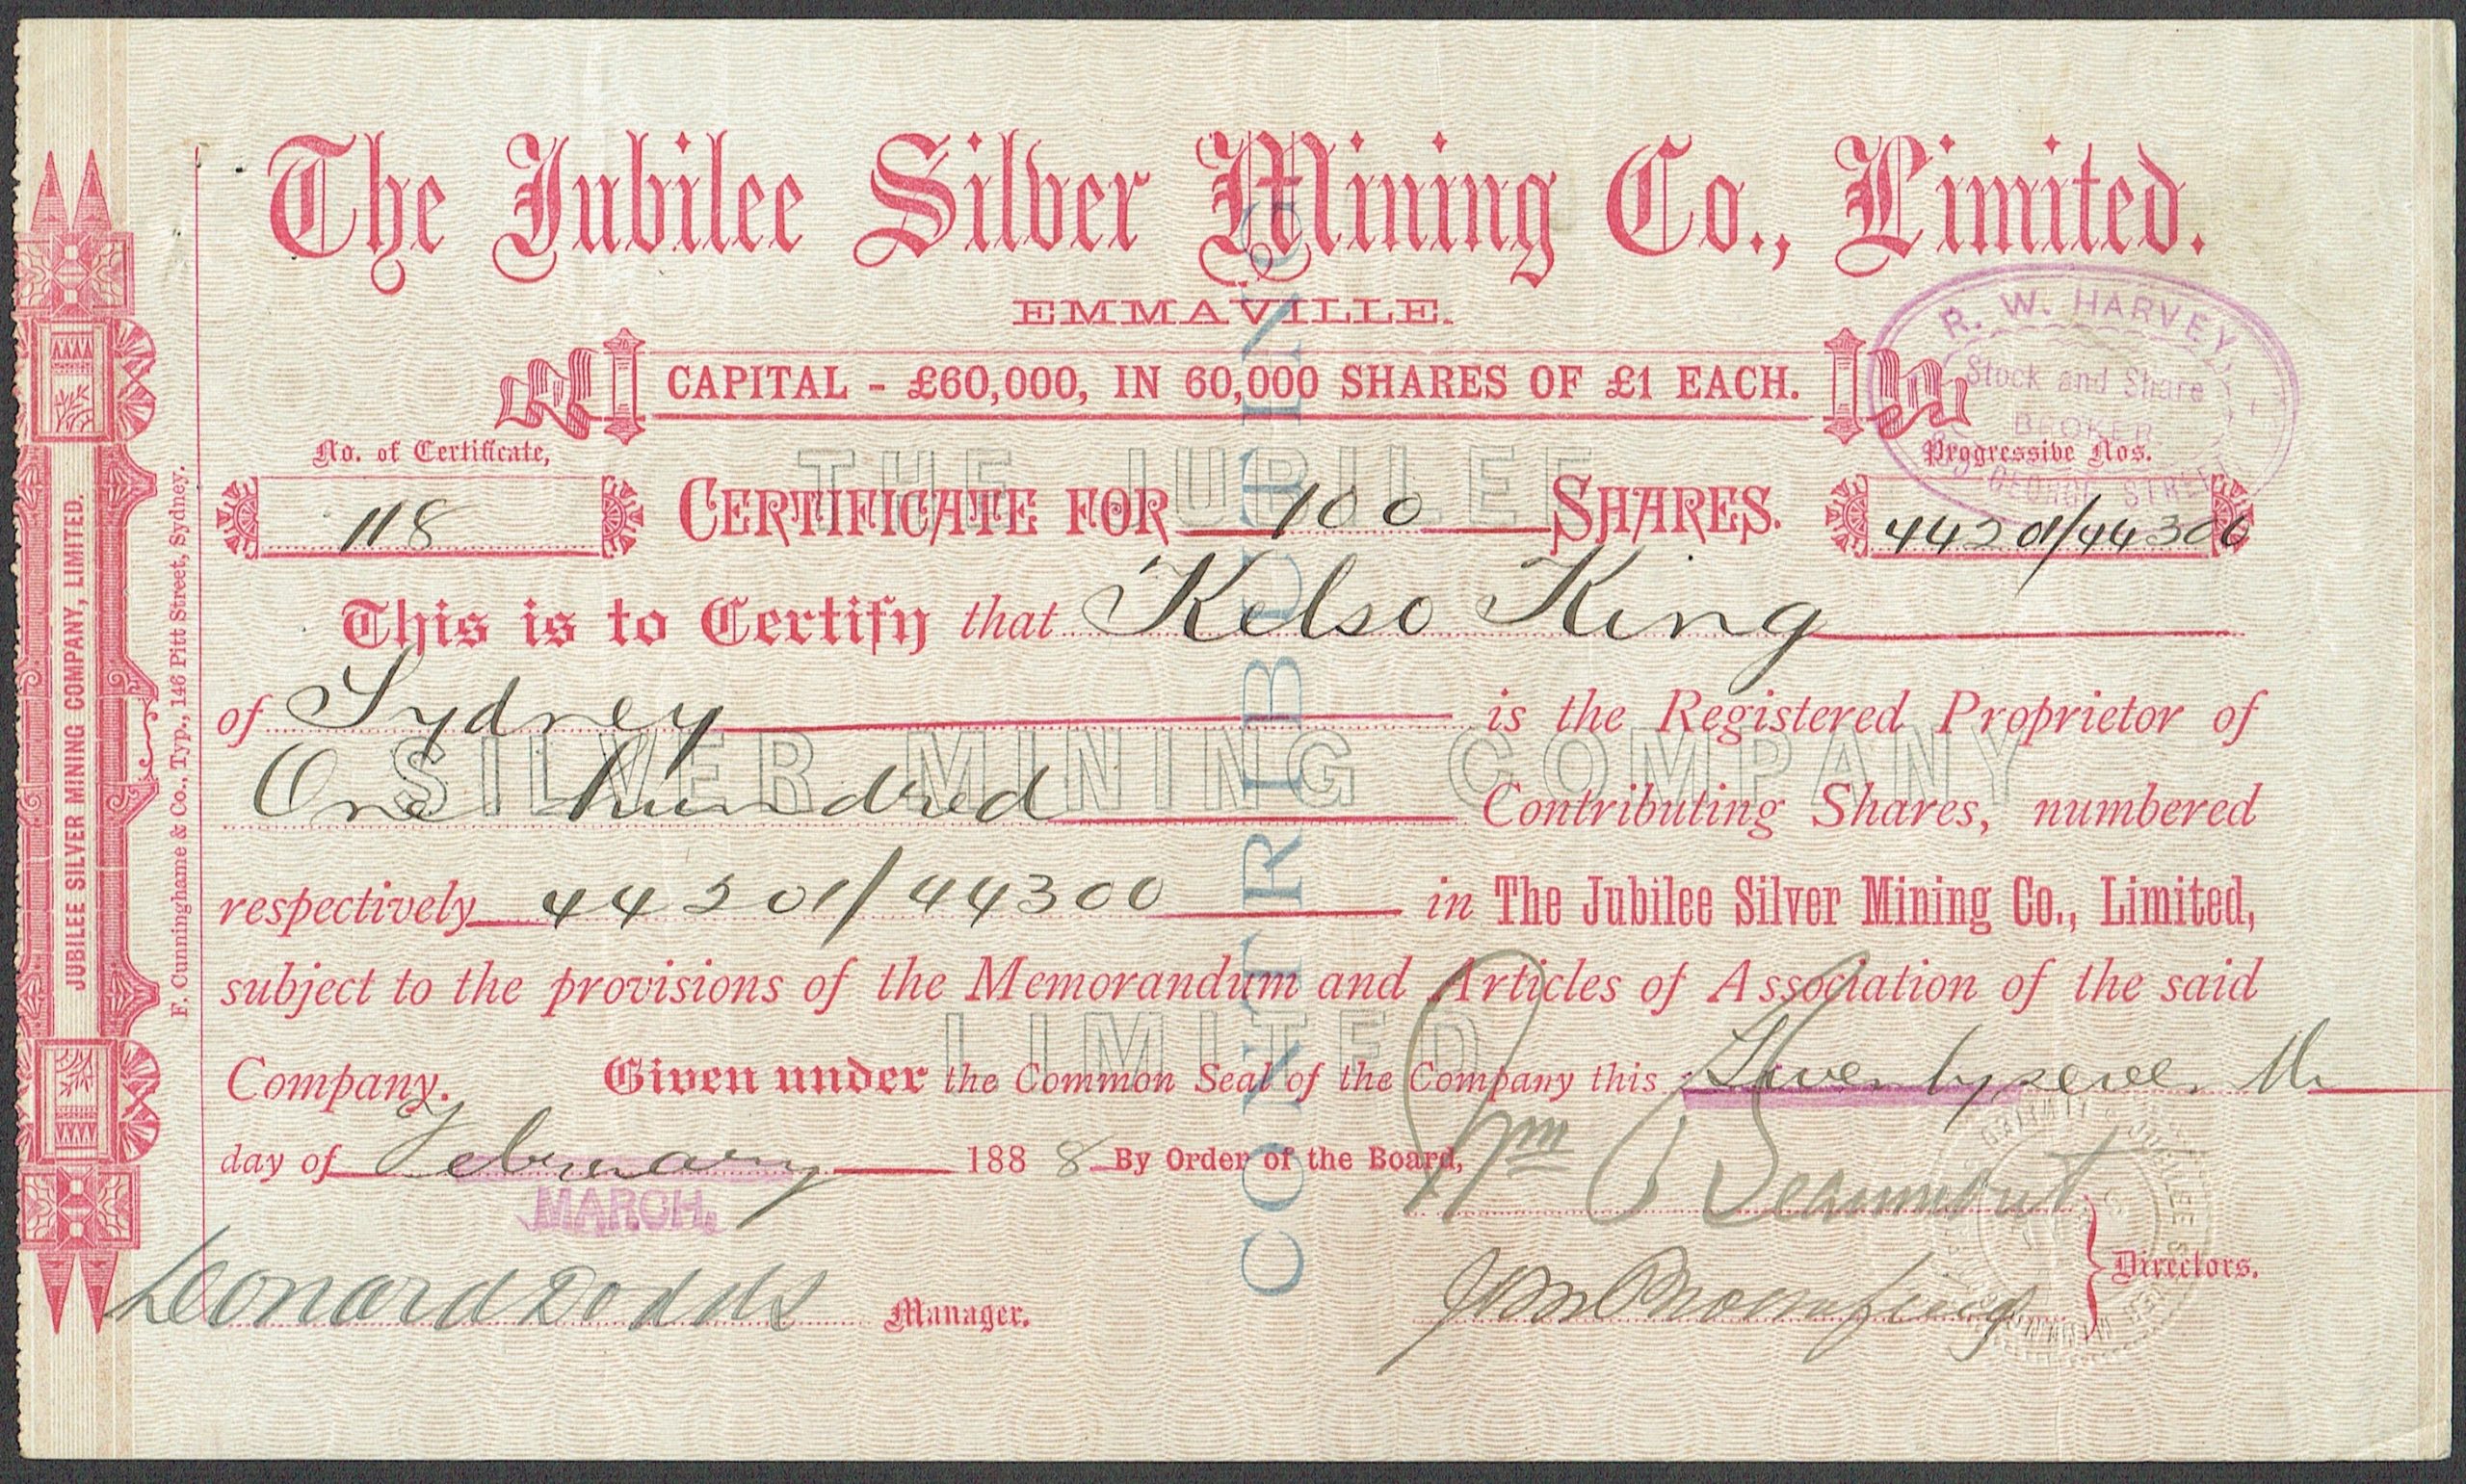 The Jubilee Silver Mining Co., Limited.
EMMAVILLE.
CAPITAL - £60,000, IN 60,000 SHARES OF £1 EACH.
R. W. HARVEY,
Stock and Share
BROKER.
GEORGE STREET
No. of Certificate,
Progressive Nos.
118
CERTIFICATE FOR 100 SHARES.
44201/44300
This is to Certify that Kelso King
of Sydney is the Registered Proprietor of
One hundred Contributing Shares, numbered
respectively 44201/44300 in The Jubilee Silver Mining Co., Limited,
subject to the provisions of the Memorandum and Articles of Association of the said
Company. Given under the Common Seal of the Company this Twenty seven th
day of February 1888 By Order of the Board,
MARCH.
Wm Beaumont
Leonard Dodds Manager.
Directors.
THE JUBILEE
SILVER MINING COMPANY
LIMITED
CONTRIBUTING
JUBILEE SILVER MINING COMPANY, LIMITED.
F. Cunninghame & Co., Typ., 146 Pitt Street, Sydney.